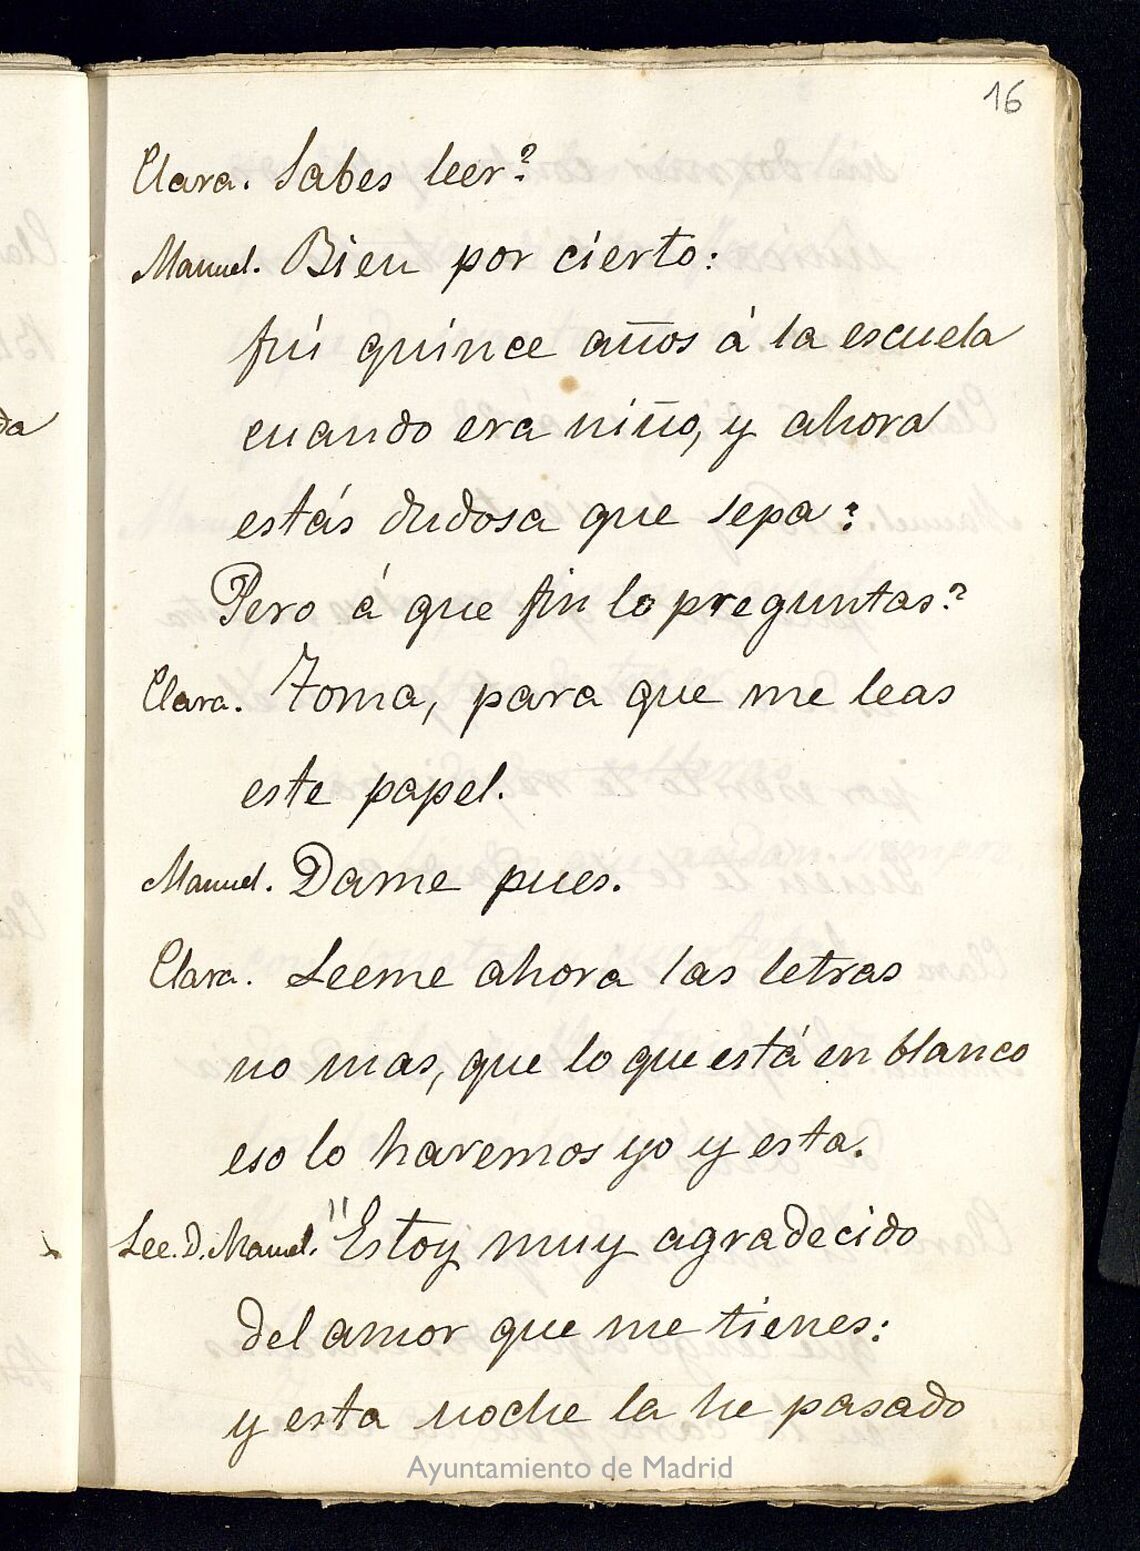 16
Clara. Sabes leer?
Manuel. Bien por cierto:
fuí quince años á la escuela
cuando era niño, y ahora
estás dudosa que sepa?
Pero á que fin lo preguntas?
Clara. Toma, para que me leas
este papel.
Manuel. Dame pues.
Clara. Leeme ahora las letras
no mas, que lo que está en blanco
eso lo haremos yo y esta.
Lee. D. Manuel. "Estoy muy agradecido
del amor que me tienes:
y esta noche la he pasado
Ayuntamiento de Madrid